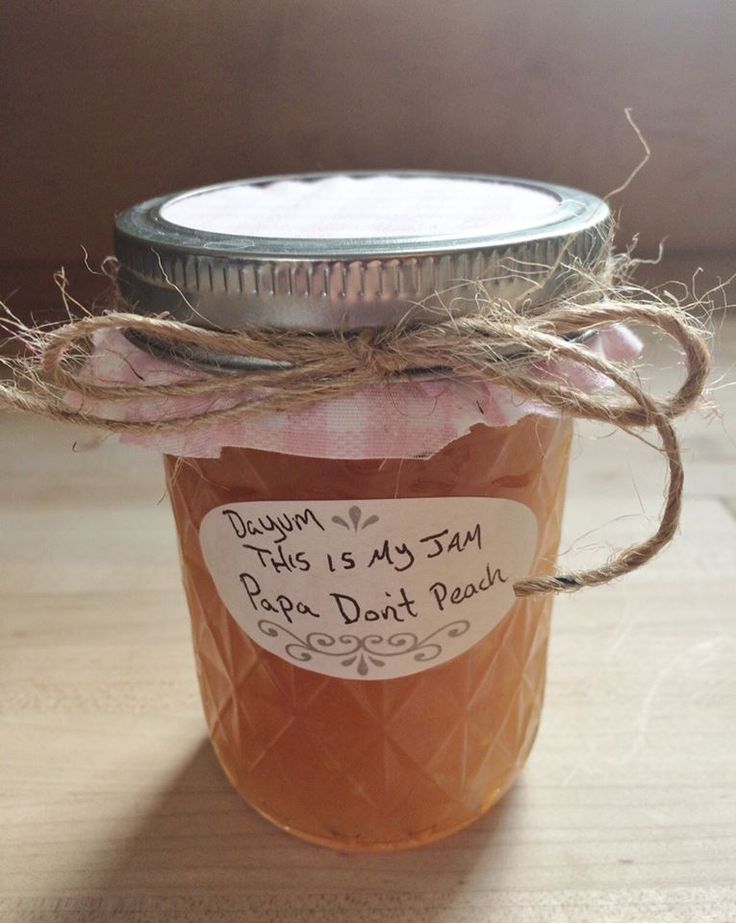 Dayum
THIS IS MY JAM
Papa Don't Peach